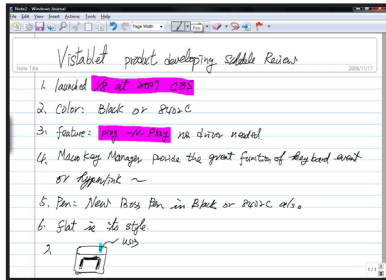 Note2 - Windows Journal
File Edit View Insert Actions Tools Help
Page Width
Vistablet product developing Review
Note Title
2006/11/17
1. launched 1/8 at 2007 CES
2. Color: Black or 8402C
3. feature: plug-N-Play no driver needed.
4. Macro Key Manager provide the great function of keyboard event
or hyperlink ~
5. Pen: New Boss Pen in Black or 8402C also.
6. flat in its style.
USB